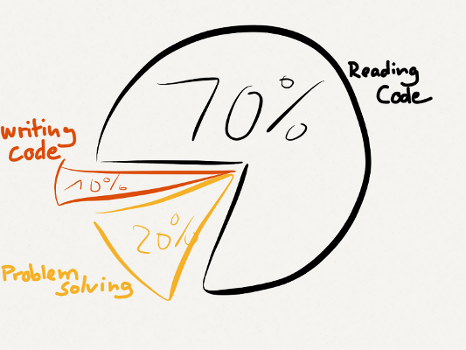 70%
Reading
Code
writing
code
10%
20%
Problem
solving